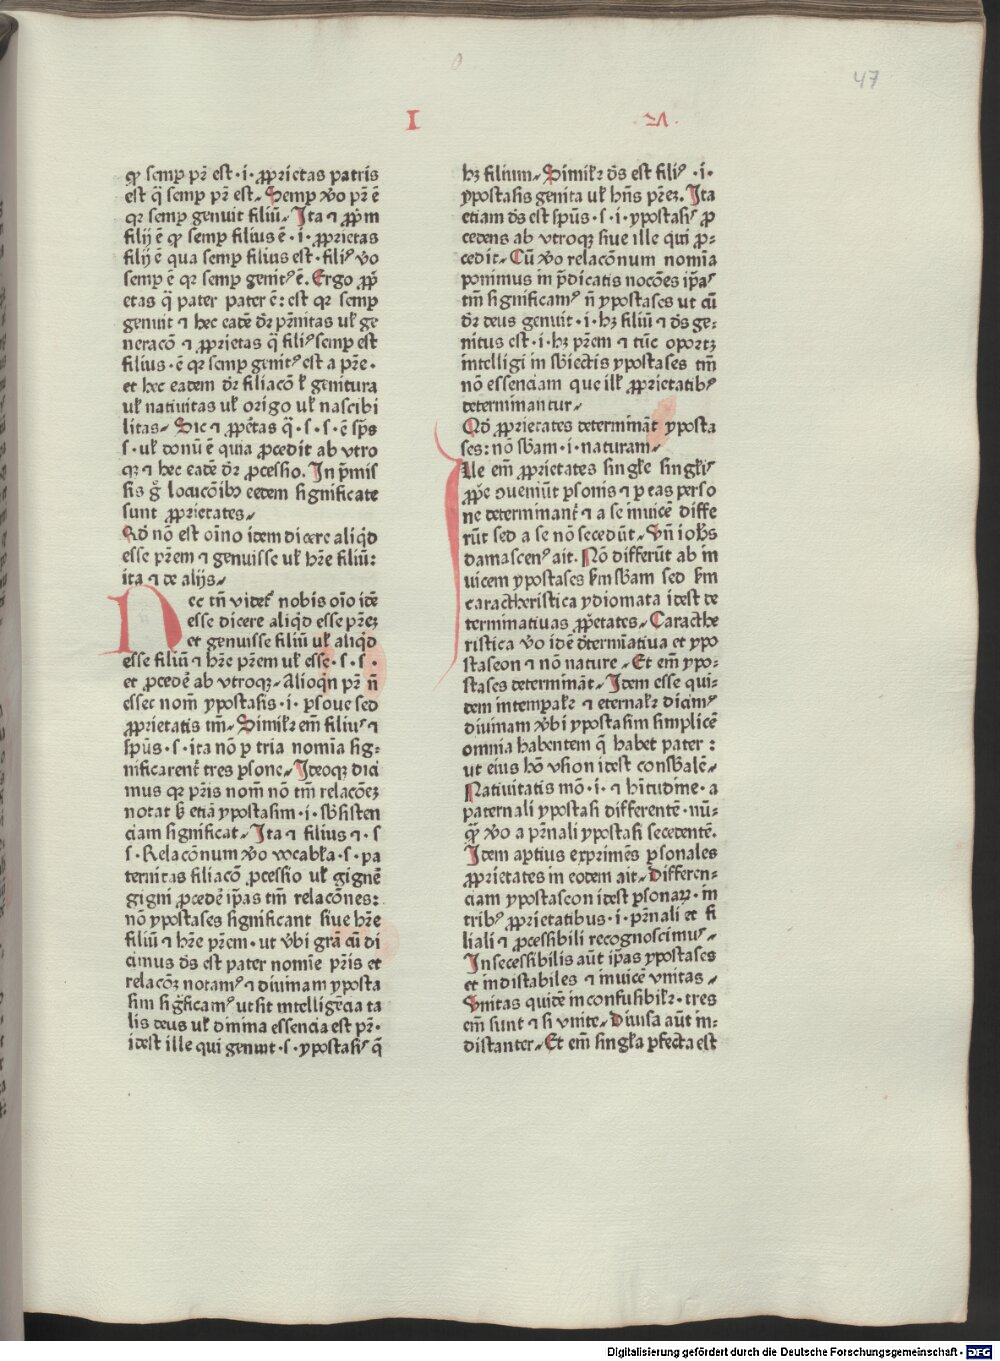 47
I
ꝙ semꝑ pr̄ est·i·ꝓprietas patris
est q̄ semꝑ pr̄ est. Semꝑ ỽo pr̄ ē
qꝛ semꝑ genuit filiū. Ita ⁊ ꝓpm̄
filij ē ꝙ semꝑ filius ē·i·ꝓprietas
filij ē qua semꝑ filius est·filiꝰ ỽo
semꝑ ē qꝛ semꝑ genitꝰ ē. Ergo ꝓp̄
etas q̄ pater pater ē: est qꝛ semꝑ
genuit ⁊ hec eadē dr̄ pr̄nitas ul̄ ge
neracō ⁊ ꝓprietas q̄ filiꝰ semꝑ est
filius·ē qꝛ semꝑ genitꝰ est a pr̄e·
et hec eadem dr̄ filiacō ul̄ genitura
ul̄ nativitas ul̄ origo ul̄ nascibi
litas. Sic ⁊ ꝓpētas q̄·s·s·ē sp̄s
s·ul̄ donū ē quia ꝓcedit ab vtro
qꝫ ⁊ hec eadē dr̄ ꝓcessio. In p̄mis
sis g̊ locucōibꝫ eedem significate
sunt ꝓprietates.
Qd̓ nō est oīno idem dicere aliqd̓
esse pr̄em ⁊ genuisse ul̄ hr̄e filiū:
ita ⁊ de alijs.
Nec tn̄ videtᷣ nobis oīo idē
esse dicere aliqd̓ esse pr̄eꝫ
et genuisse filiū ul̄ aliqd̓
esse filiū ⁊ hr̄e pr̄em ul̄ esse·s·s·
et ꝓcedē ab vtroqꝫ. Alioqn̄ pr̄ n̄
esset nom̄ ypostasis·i·ꝑsone sed
ꝓprietatis tm̄. Similr̄ em̄ filiuꝰ ⁊
sp̄us·s·ita nō ꝑ tria nomīa sig⸗
nificarentᷣ tres ꝑsone. Ideoqꝫ dici
mus qꝛ pr̄is nom̄ nō tm̄ relacōeꝫ
notat sꝫ etiā ypostasim·i·sb̄sisten
ciam significat. Ita ⁊ filius ⁊·s
s·Relacōnum ỽo vocabl̄a·s·pa
ternitas filiacō ꝓcessio ul̄ gignē
gigni ꝓcedē ip̄as tm̄ relacōnes:
nō ypostases significant siue hr̄e
filiū ⁊ hr̄e pr̄em·ut v̓bi gr̄a cū di
cimus ds̄ est pater nomīe pr̄is et
relacōꝫ notamꝰ ⁊ diuinam yposta
sim sigficamꝰ ut sit intelligēcia ta
lis deus ul̄ diuina essencia est pr̄·
idest ille qui genuit·s·ypostasiꝰ q̄
hꝫ filium. Similr̄ ds̄ est filiꝰ·i·
ypostasis genita ul̄ hn̄s pr̄eꝫ. Ita
etiam ds̄ est sp̄us·s·i·ypostasiꝰ ꝓ
cedens ab vtroqꝫ siue ille qui ꝓ⸗
cedit. Cū ỽo relacōnum nomīa
ponimus in p̄dicatis nocōes ip̄aꝰ
tm̄ significamꝰ n̄ ypostases ut cū
dr̄ deus genuit·i·hꝫ filiū ⁊ ds̄ ge⸗
nitus est·i·hꝫ pr̄em ⁊ tūc oportꝫ
intelligi in sb̄iectis ypostases tm̄
nō essenciam que ill̄ ꝓprietatibꝰ
determinantur.
Qd̓ ꝓprietates determināt yposta
ses: nō sb̄am·i·naturam.
Ille em̄ ꝓprietates singl̄e singl̄iꝰ
ꝓp̄e ꝯueniūt ꝑsonis ⁊ ꝑ eas perso
ne determinantᷣ ⁊ a se inuicē diffe
rūt sed a se nō secedūt. Vn̄ ioh̄s
damascenꝰ ait. Nō differūt ab in
uicem ypostases sm̄ sb̄am sed sm̄
caractheristica ydiomata idest de
terminatiuas ꝓp̄etates. Caracthe
ristica ỽo idē d̓termīatiua et ypo
staseon ⁊ nō nature. Et em̄ ypo⸗
stases determināt. Idem esse qui⸗
dem intempalr̄ ⁊ eternalr̄ dicimꝰ
diuinam v̓bi ypostasim simplicē
omnia habentem q̄ habet pater:
ut eius hō vsion idest consb̄alē.
Natiuitatis mō·i·⁊ hītudīne·a
paternali ypostasi differentē·nū⸗
q̄ꝫ ỽo a pr̄nali ypostasi secedentē.
Idem aptius exprimēs ꝑsonales
ꝓprietates in eodem ait. Differen⸗
ciam ypostaseon idest ꝑsonaꝝ·in
tribꝰ ꝓprietatibus·i·pr̄nali et fi
liali ⁊ ꝓcessibili recognoscimuꝰ.
Insecessibilis aūt ip̄as ypostases
et indistabiles ⁊ inuicē vnitas.
Vnitas quidē inconfusibilr̄·tres
em̄ sunt ⁊ si vnite. Diuisa aūt in⸗
distanter. Et em̄ singl̄a ꝑfecta est
Digitalisierung gefördert durch die Deutsche Forschungsgemeinschaft - DFG